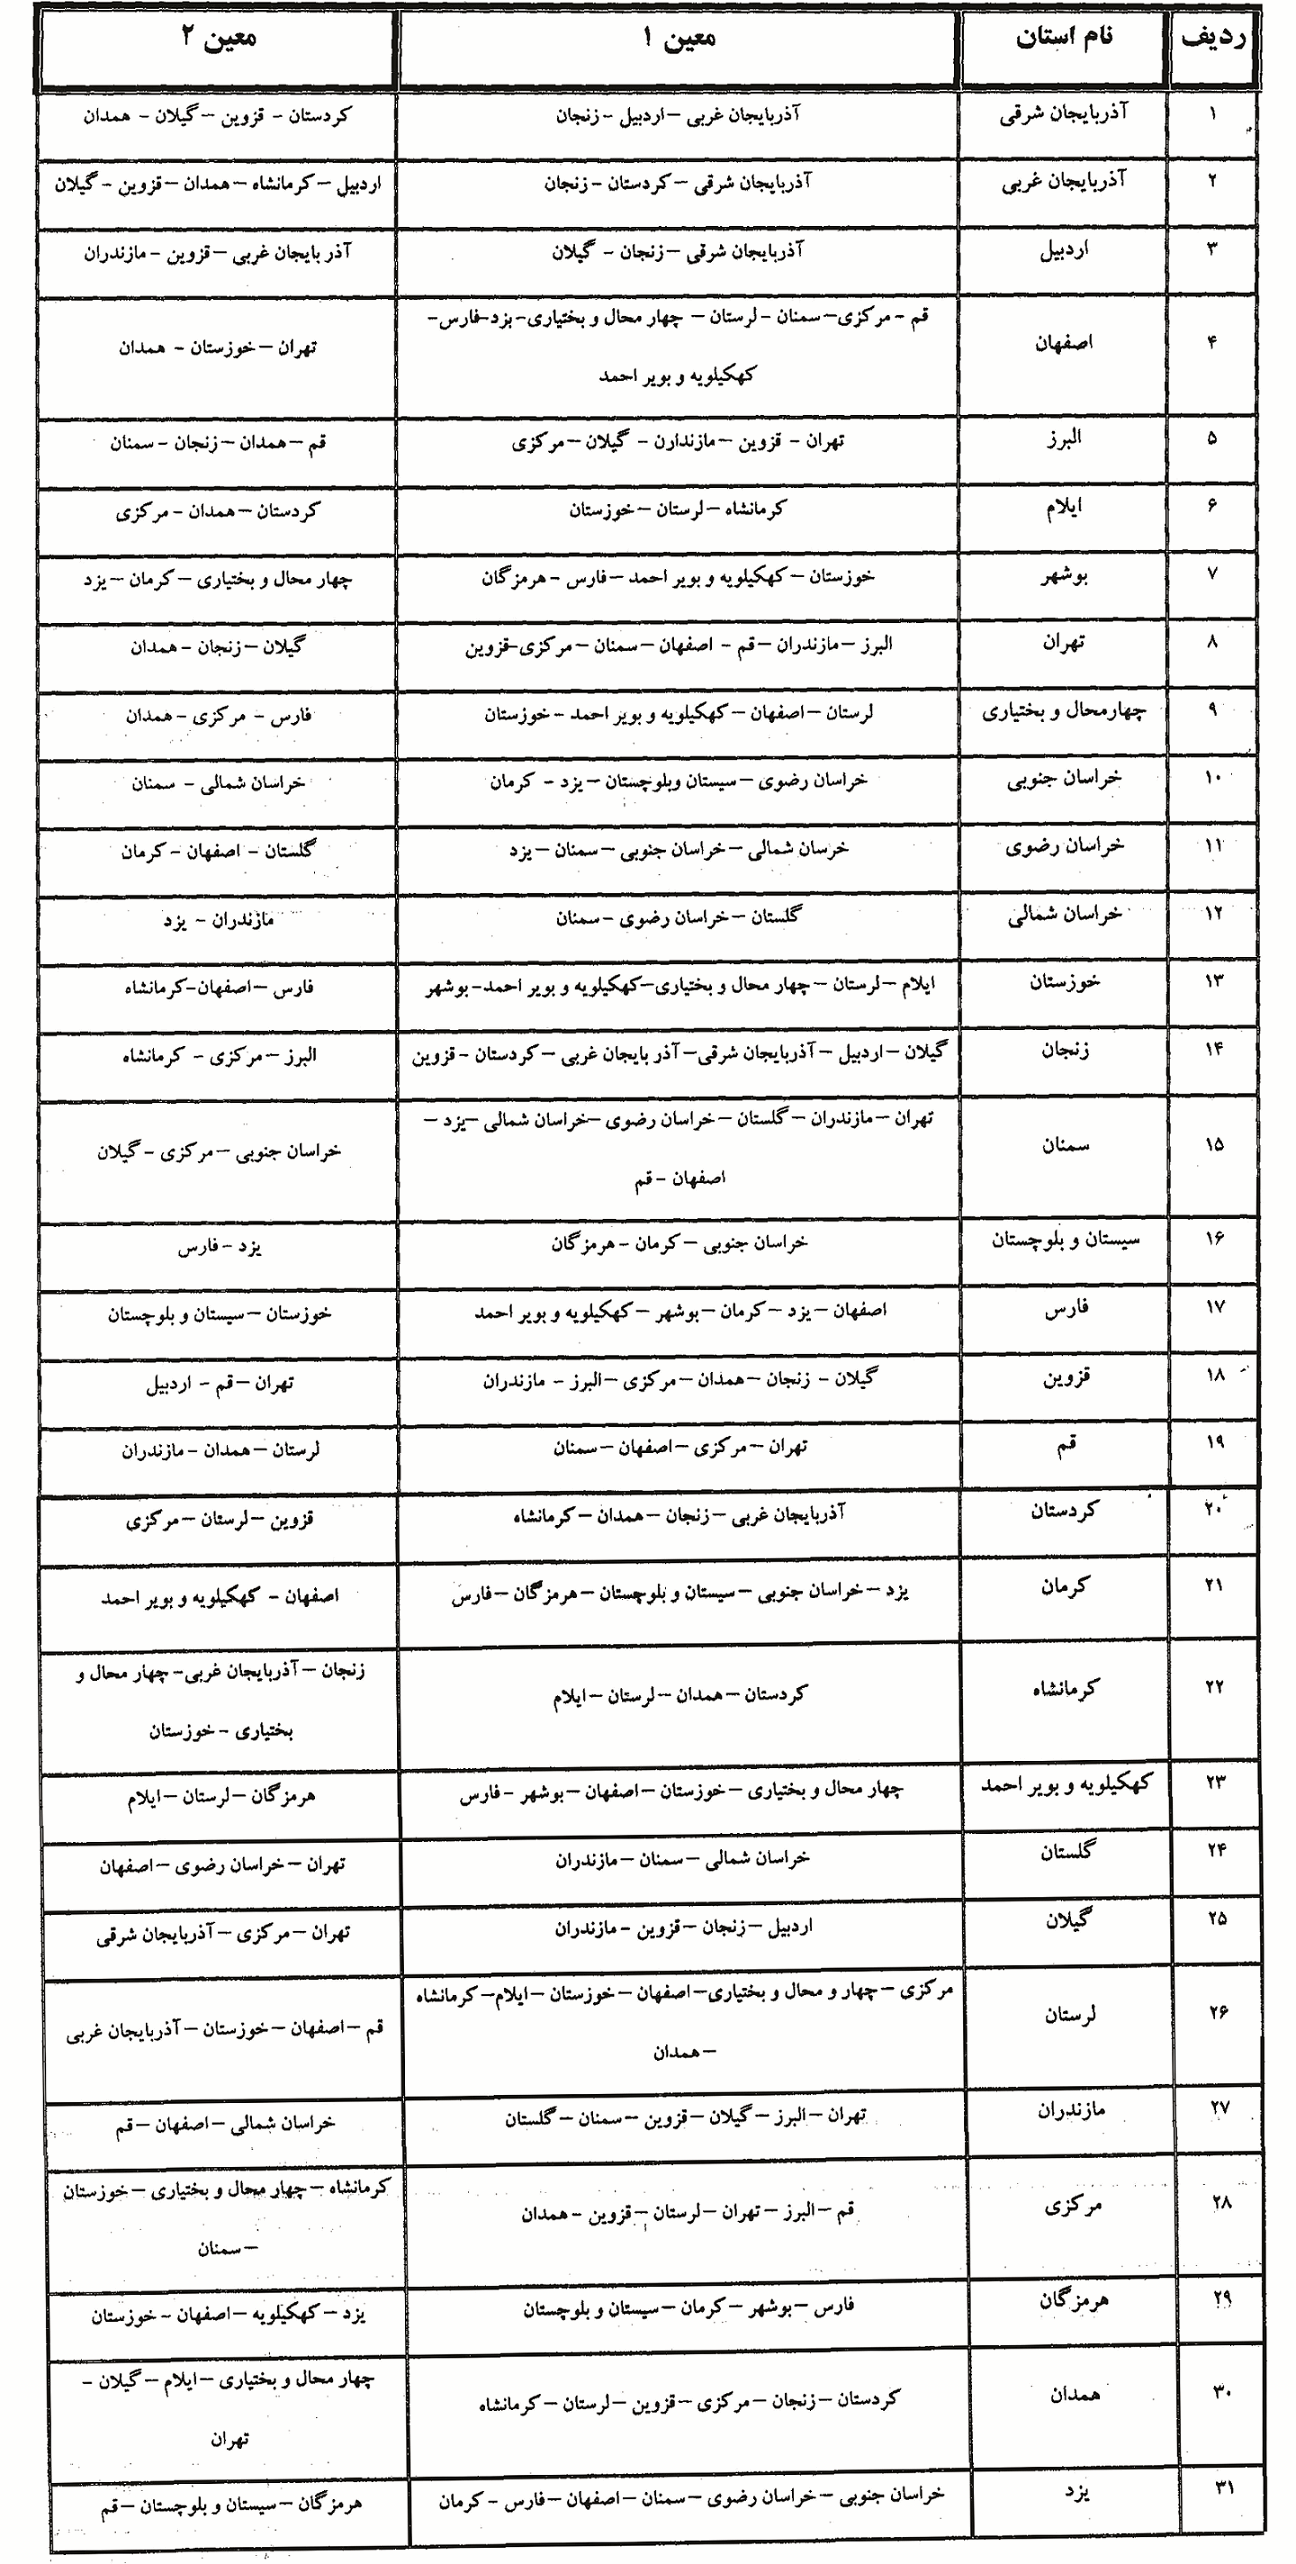 ردیف نام استان معین ۱ معین ۲
۱ آذربایجان شرقی آذربایجان غربی –اردبیل -زنجان کردستان - قزوین –گیلان - همدان
۲ آذربایجان غربی آذربایجان شرقی –کردستان -زنجان اردبیل –کرمانشاه –همدان –قزوین - گیلان
۳ اردبیل آذربایجان شرقی –زنجان - گیلان آذر بایجان غربی –قزوین -مازندران
۴ اصفهان قم - مرکزی– سمنان - لرستان – چهار محال و بختیاری- یزد-فارس-
کهکیلویه و بویر احمد تهران –خوزستان - همدان
۵ البرز تهران - قزوین –مازندارن - گیلان –مرکزی قم –همدان –زنجان - سمنان
۶ ایلام کرمانشاه –لرستان –خوزستان کردستان –همدان -مرکزی
۷ بوشهر خوزستان – کهکیلویه و بویر احمد –فارس - هرمزگان چهار محال و بختیاری –کرمان –یزد
۸ تهران البرز –مازندران –قم - اصفهان –سمنان –مرکزی-قزوین گیلان –زنجان -همدان
۹ چهارمحال و بختیاری لرستان –اصفهان –کهکیلویه و بویر احمد -خوزستان فارس - مرکزی -همدان
۱۰ خراسان جنوبی خراسان رضوی –سیستان وبلوچستان –یزد - کرمان خراسان شمالی - سمنان
۱۱ خراسان رضوی خرسان شمالی –خراسان جنوبی –سمنان –یزد گلستان - اصفهان -کرمان
۱۲ خراسان شمالی گلستان –خراسان رضوی -سمنان مازندران - یزد
۱۳ خوزستان ایلام –لرستان –چهار محال و بختیاری–کهکیلویه و بویر احمد-بوشهر فارس –اصفهان-کرمانشاه
۱۴ زنجان گیلان –اردبیل –آذربایجان شرقی– آذر بایجان غربی –کردستان -قزوین البرز –مرکزی - کرمانشاه
۱۵ سمنان تهران –مازندران –گلستان –خراسان رضوی –خراسان شمالی –یزد –
اصفهان -قم خراسان جنوبی –مرکزی -گیلان
۱۶ سیستان و بلوچستان خراسان جنوبی –کرمان -هرمزگان یزد -فارس
۱۷ فارس اصفهان –یزد –کرمان –بوشهر –کهکیلویه و بویر احمد خوزستان –سیستان و بلوچستان
۱۸ قزوین گیلان - زنجان –همدان –مرکزی –البرز - مازندران تهران –قم - اردبیل
۱۹ قم تهران –مرکزی –اصفهان –سمنان لرستان –همدان -مازندران
۲۰ کردستان آذربایجان غربی –زنجان –همدان –کرمانشاه قزوین –لرستان –مرکزی
۲۱ کرمان یزد –خراسان جنوبی –سیستان و بلوچستان –هرمزگان –فارس اصفهان - کهکیلویه و بویر احمد
۲۲ کرمانشاه کردستان –همدان –لرستان –ایلام زنجان –آذربایجان غربی- چهار محال و
بختیاری -خوزستان
۲۳ کهکیلویه و بویر احمد چهار محال و بختیاری –خوزستان –اصفهان –بوشهر -فارس هرمزگان –لرستان –ایلام
۲۴ گلستان خراسان شمالی –سمنان –مازندران تهران –خراسان رضوی –اصفهان
۲۵ گیلان اردبیل –زنجان –قزوین -مازندران تهران –مرکزی –آذربایجان شرقی
۲۶ لرستان مرکزی –چهار و محال و بختیاری– اصفهان –خوزستان –ایلام– کرمانشاه
–همدان قم –اصفهان –خوزستان –آذربایجان غربی
۲۷ مازندران تهران –البرز –گیلان –قزوین –سمنان –گلستان خراسان شمالی –اصفهان –قم
۲۸ مرکزی قم –البرز –تهران –لرستان –قزوین -همدان کرمانشاه –چهار محال و بختیاری –خوزستان
–سمنان
۲۹ هرمزگان فارس –بوشهر –کرمان –سیستان و بلوچستان یزد –کهکیلویه –اصفهان -خوزستان
۳۰ همدان کردستان –زنجان –مرکزی –قزوین –لرستان –کرمانشاه چهار محال و بختیاری –ایلام –گیلان -
تهران
۳۱ یزد خراسان جنوبی –خراسان رضوی –سمنان –اصفهان –فارس - کرمان هرمزگان –سیستان و بلوچستان –قم